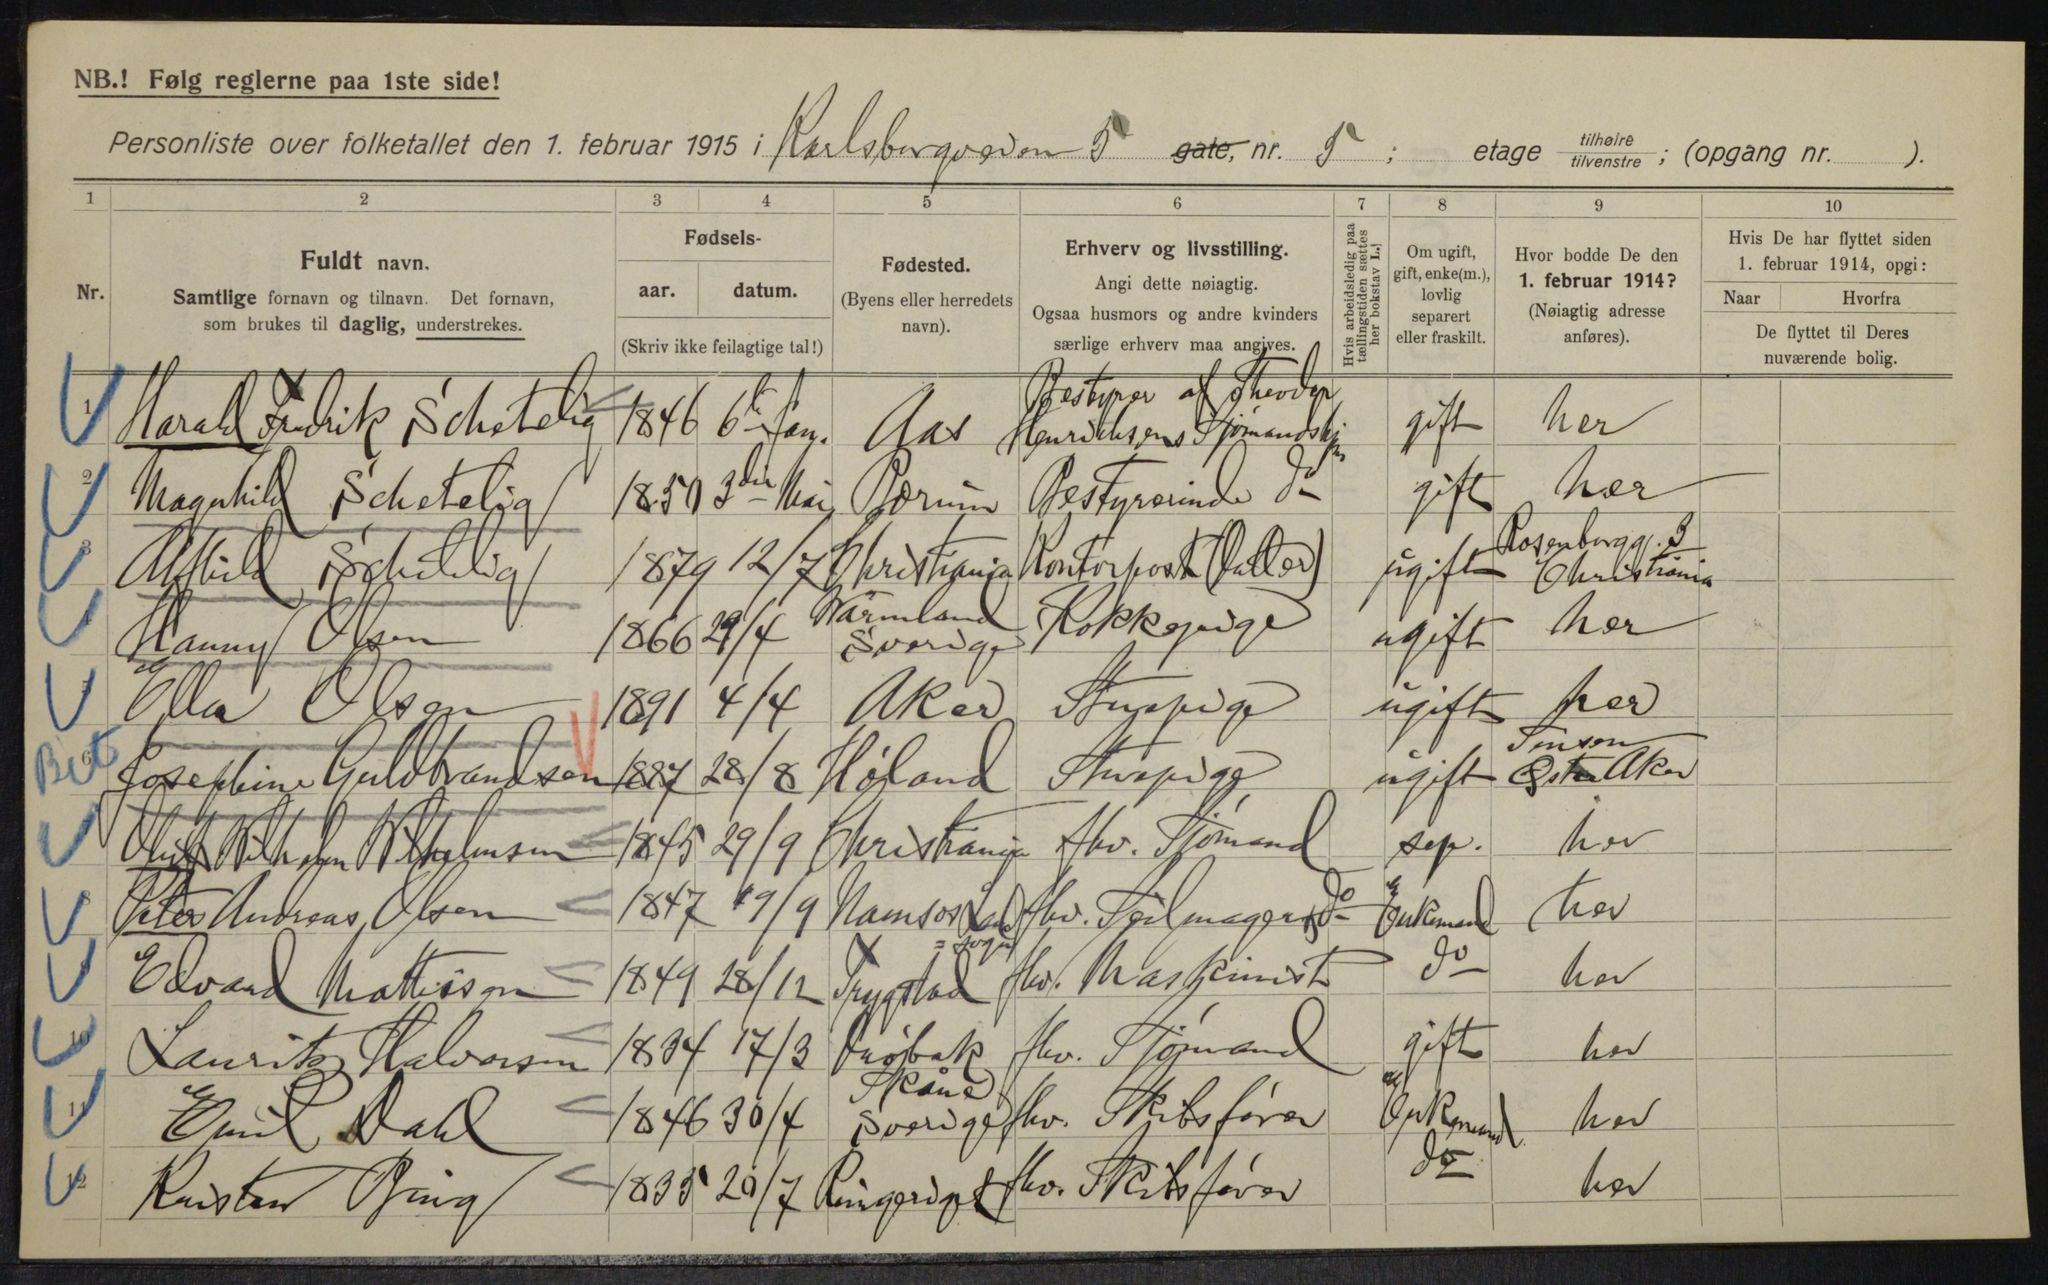 NB.! Følg reglerne paa 1ste side!
Personliste over folketallet den 1. februar 1915 i Karlsborgveien 5 gate, nr. 5 ; etage tilhøire tilvenstre ; (opgang nr. ).
1 2 3 4 5 6 7 8 9 10
Nr.
Fuldt navn.
Samtlige fornavn og tilnavn. Det fornavn,
som brukes til daglig, understrekes.
Fødsels-
aar. datum.
(Skriv ikke feilagtige tal!)
Fødested.
(Byens eller herredets
navn).
Erhverv og livsstilling.
Angi dette nøiagtig.
Ogsaa husmors og andre kvinders
særlige erhverv maa angives.
Hvis arbeidsledig paa
tællingstiden sættes
her bokstav L.!
Om ugift,
gift, enke(m.),
lovlig
separert
eller fraskilt.
Hvor bodde De den
1. februar 1914?
(Nøiagtig adresse
anføres).
Hvis De har flyttet siden
1. februar 1914, opgi:
Naar Hvorfra
De flyttet til Deres
nuværende bolig.
1 Harald Fredrik Schetelig 1846 6te Jan. Aas Bestyrer af Theodor Henrichsens Sjømandshjem gift her
2 Magnhild Schetelig 1850 3die Mai Bærum Bestyrerinde do gift her
3 Alfhild Schetelig 1879 12/7 Christiania Kontorpost (Datter) ugift Rosenborgg. 3 Christiania
4 Hanny Olsen 1866 29/4 Värmland Sverige Kokkepige ugift her
5 Ella Olsen 1891 4/4 Aker Stuepige ugift her
Bet
6 Josephine Guldbrandsen 1887 28/8 Høland Stuepige ugift Jensen Østre Aker
Wilhelm Wilhelmsen 1845 29/9 Christiania fhv. Sjømand sep. her
8 Peter Andreas Olsen 1847 19/9 Namsos Land = sogn fhv. Seilmager do Enkemand her
9 Edvard Mattisson 1849 28/12 Trygstad fhv. Maskinist do her
10 Lauritz Halvorsen 1834 17/3 Drøbak fhv. Sjømand gift her
11 Emil Dahl 1846 30/4 Skåne Sverige fhv. Skibsfører Enkemand her
12 Kristen Bing 1835 20/7 Ringerige fhv. Skibsfører do her